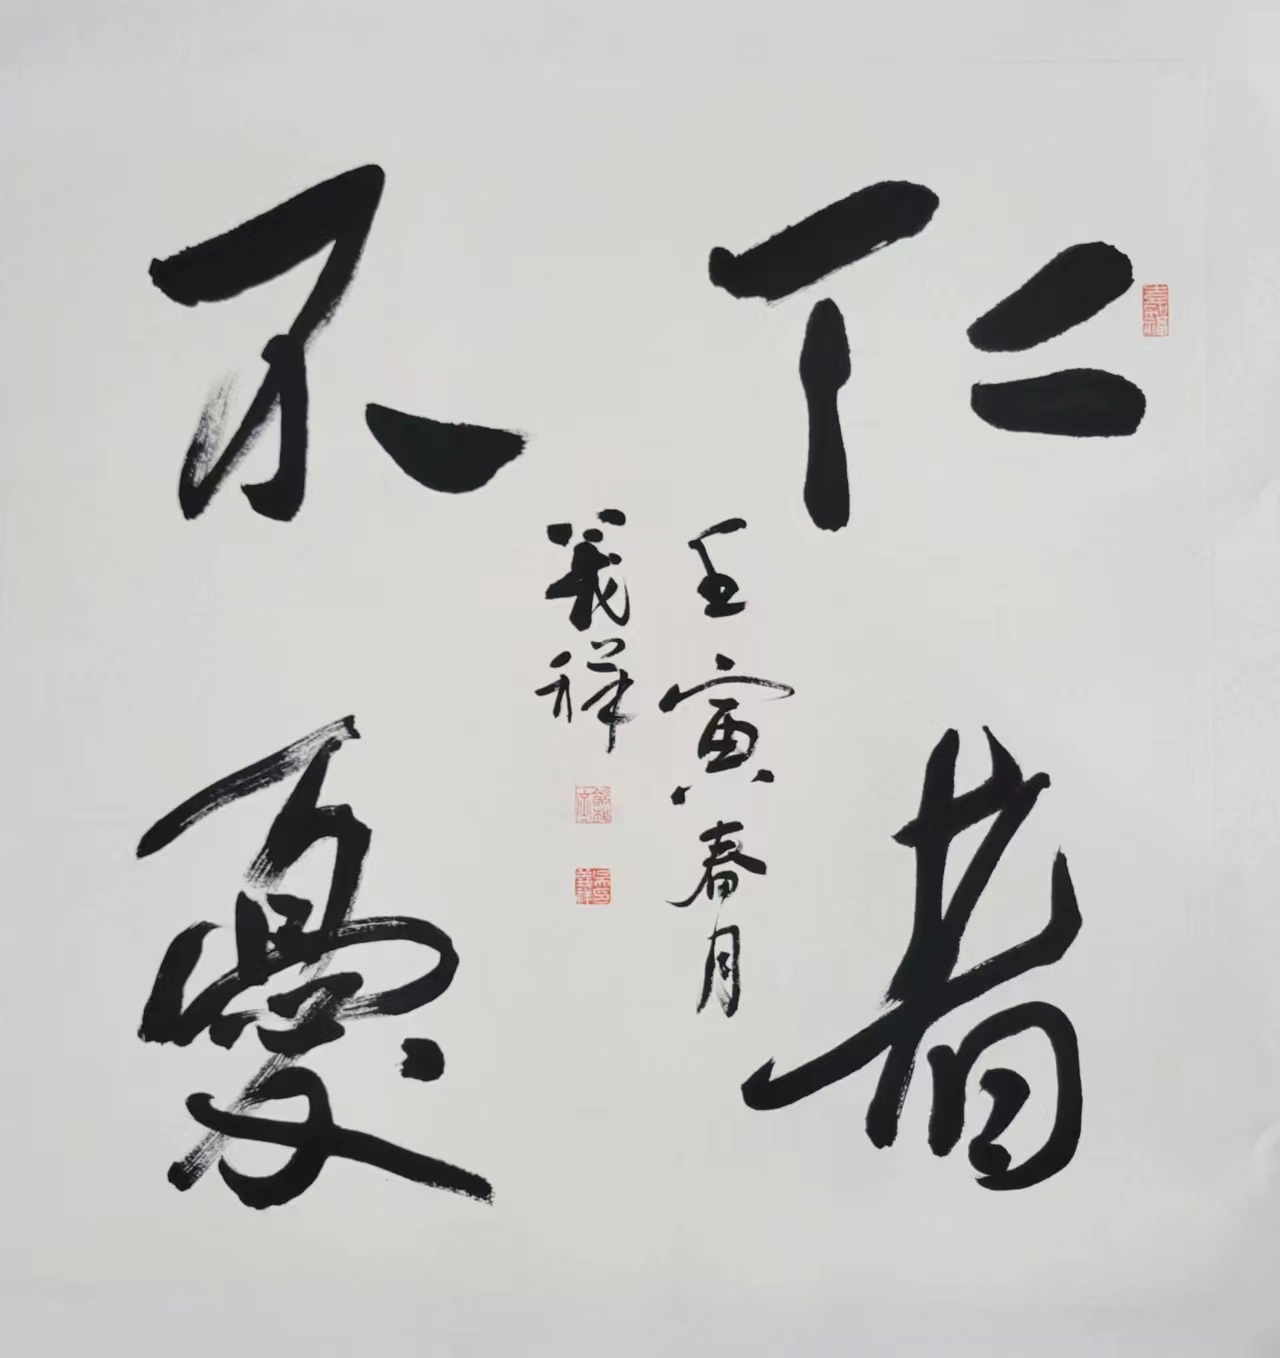 仁者
不憂
壬寅春月
義祥